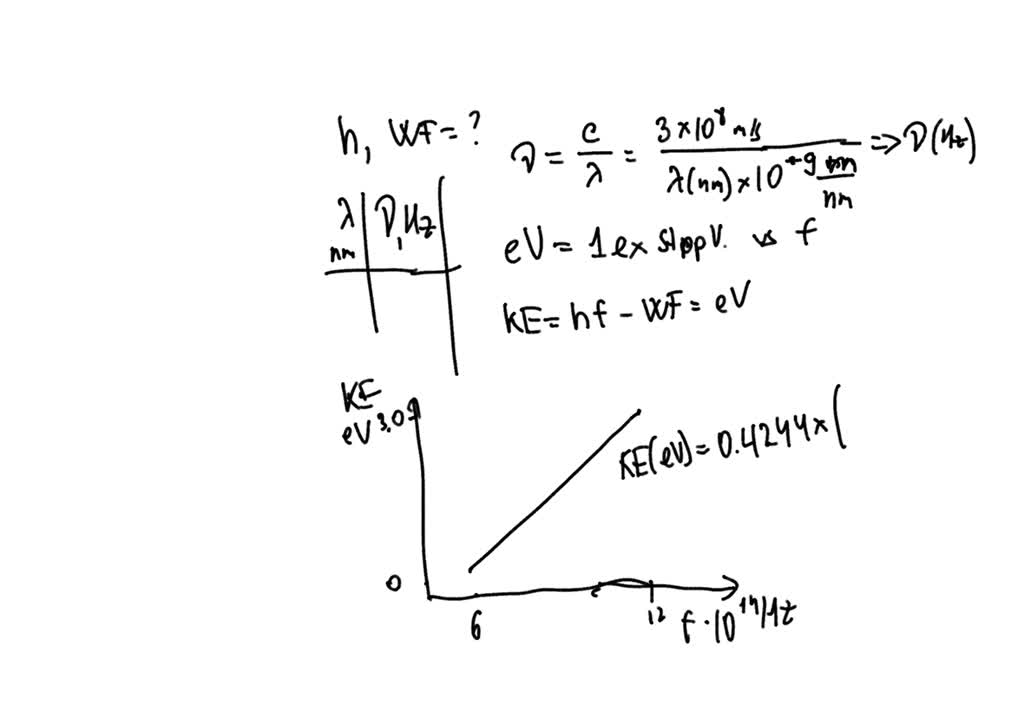 h, WF = ?
ν = c/λ = 3×10⁸ m/s / λ(nm)×10⁻⁹ m/nm => ν(Hz)
λ nm | ν, Hz
eV = 1e× stopp V. vs f
KE = hf - WF = eV
KE
eV 3.0
KE(eV) = 0.4244×(
0
6
12
f·10¹⁴ Hz